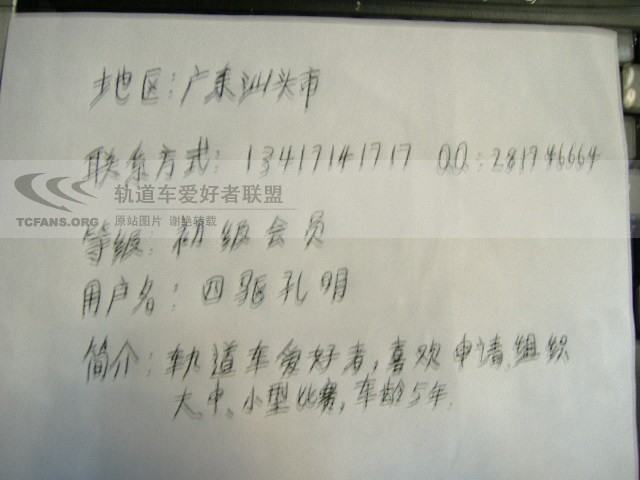 地区：广东汕头市
联系方式：13417141717 QQ：281746664
轨道车爱好者联盟
TCFANS.ORG 原站图片 谢绝转载
等级：初级会员
用户名：四驱孔明
简介：轨道车爱好者，喜欢申请、组织
大、中、小型比赛，车龄5年.